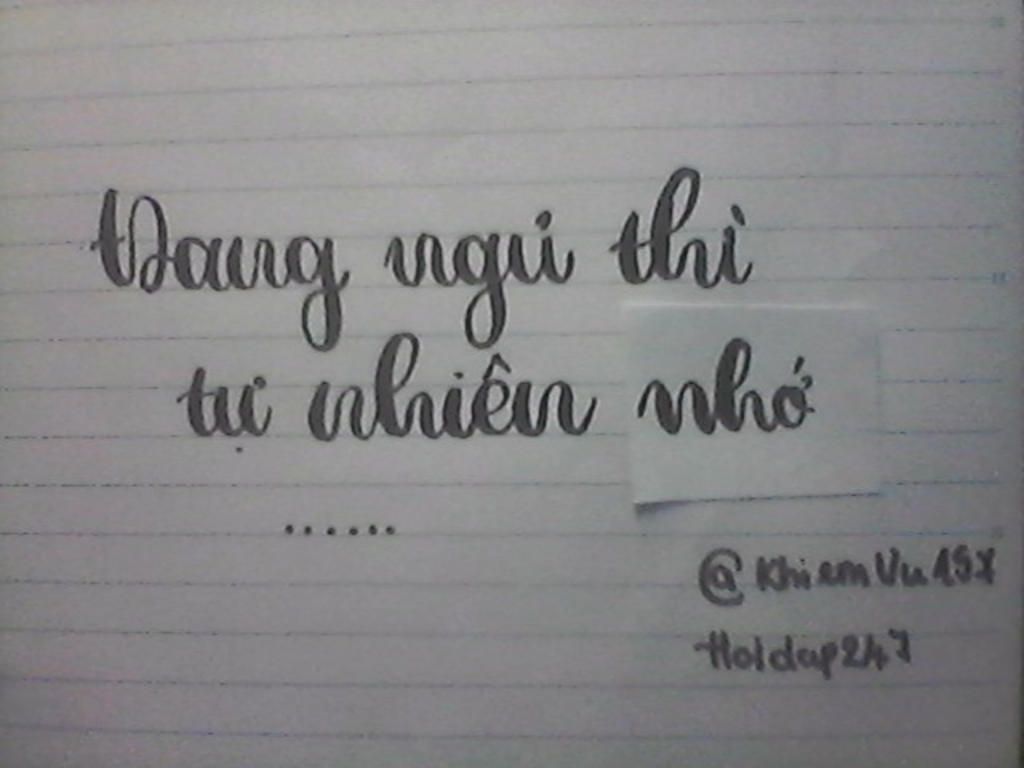 Đang ngủ thì
tự nhiên nhớ
......
@KhiemVu19x
Hoidap247